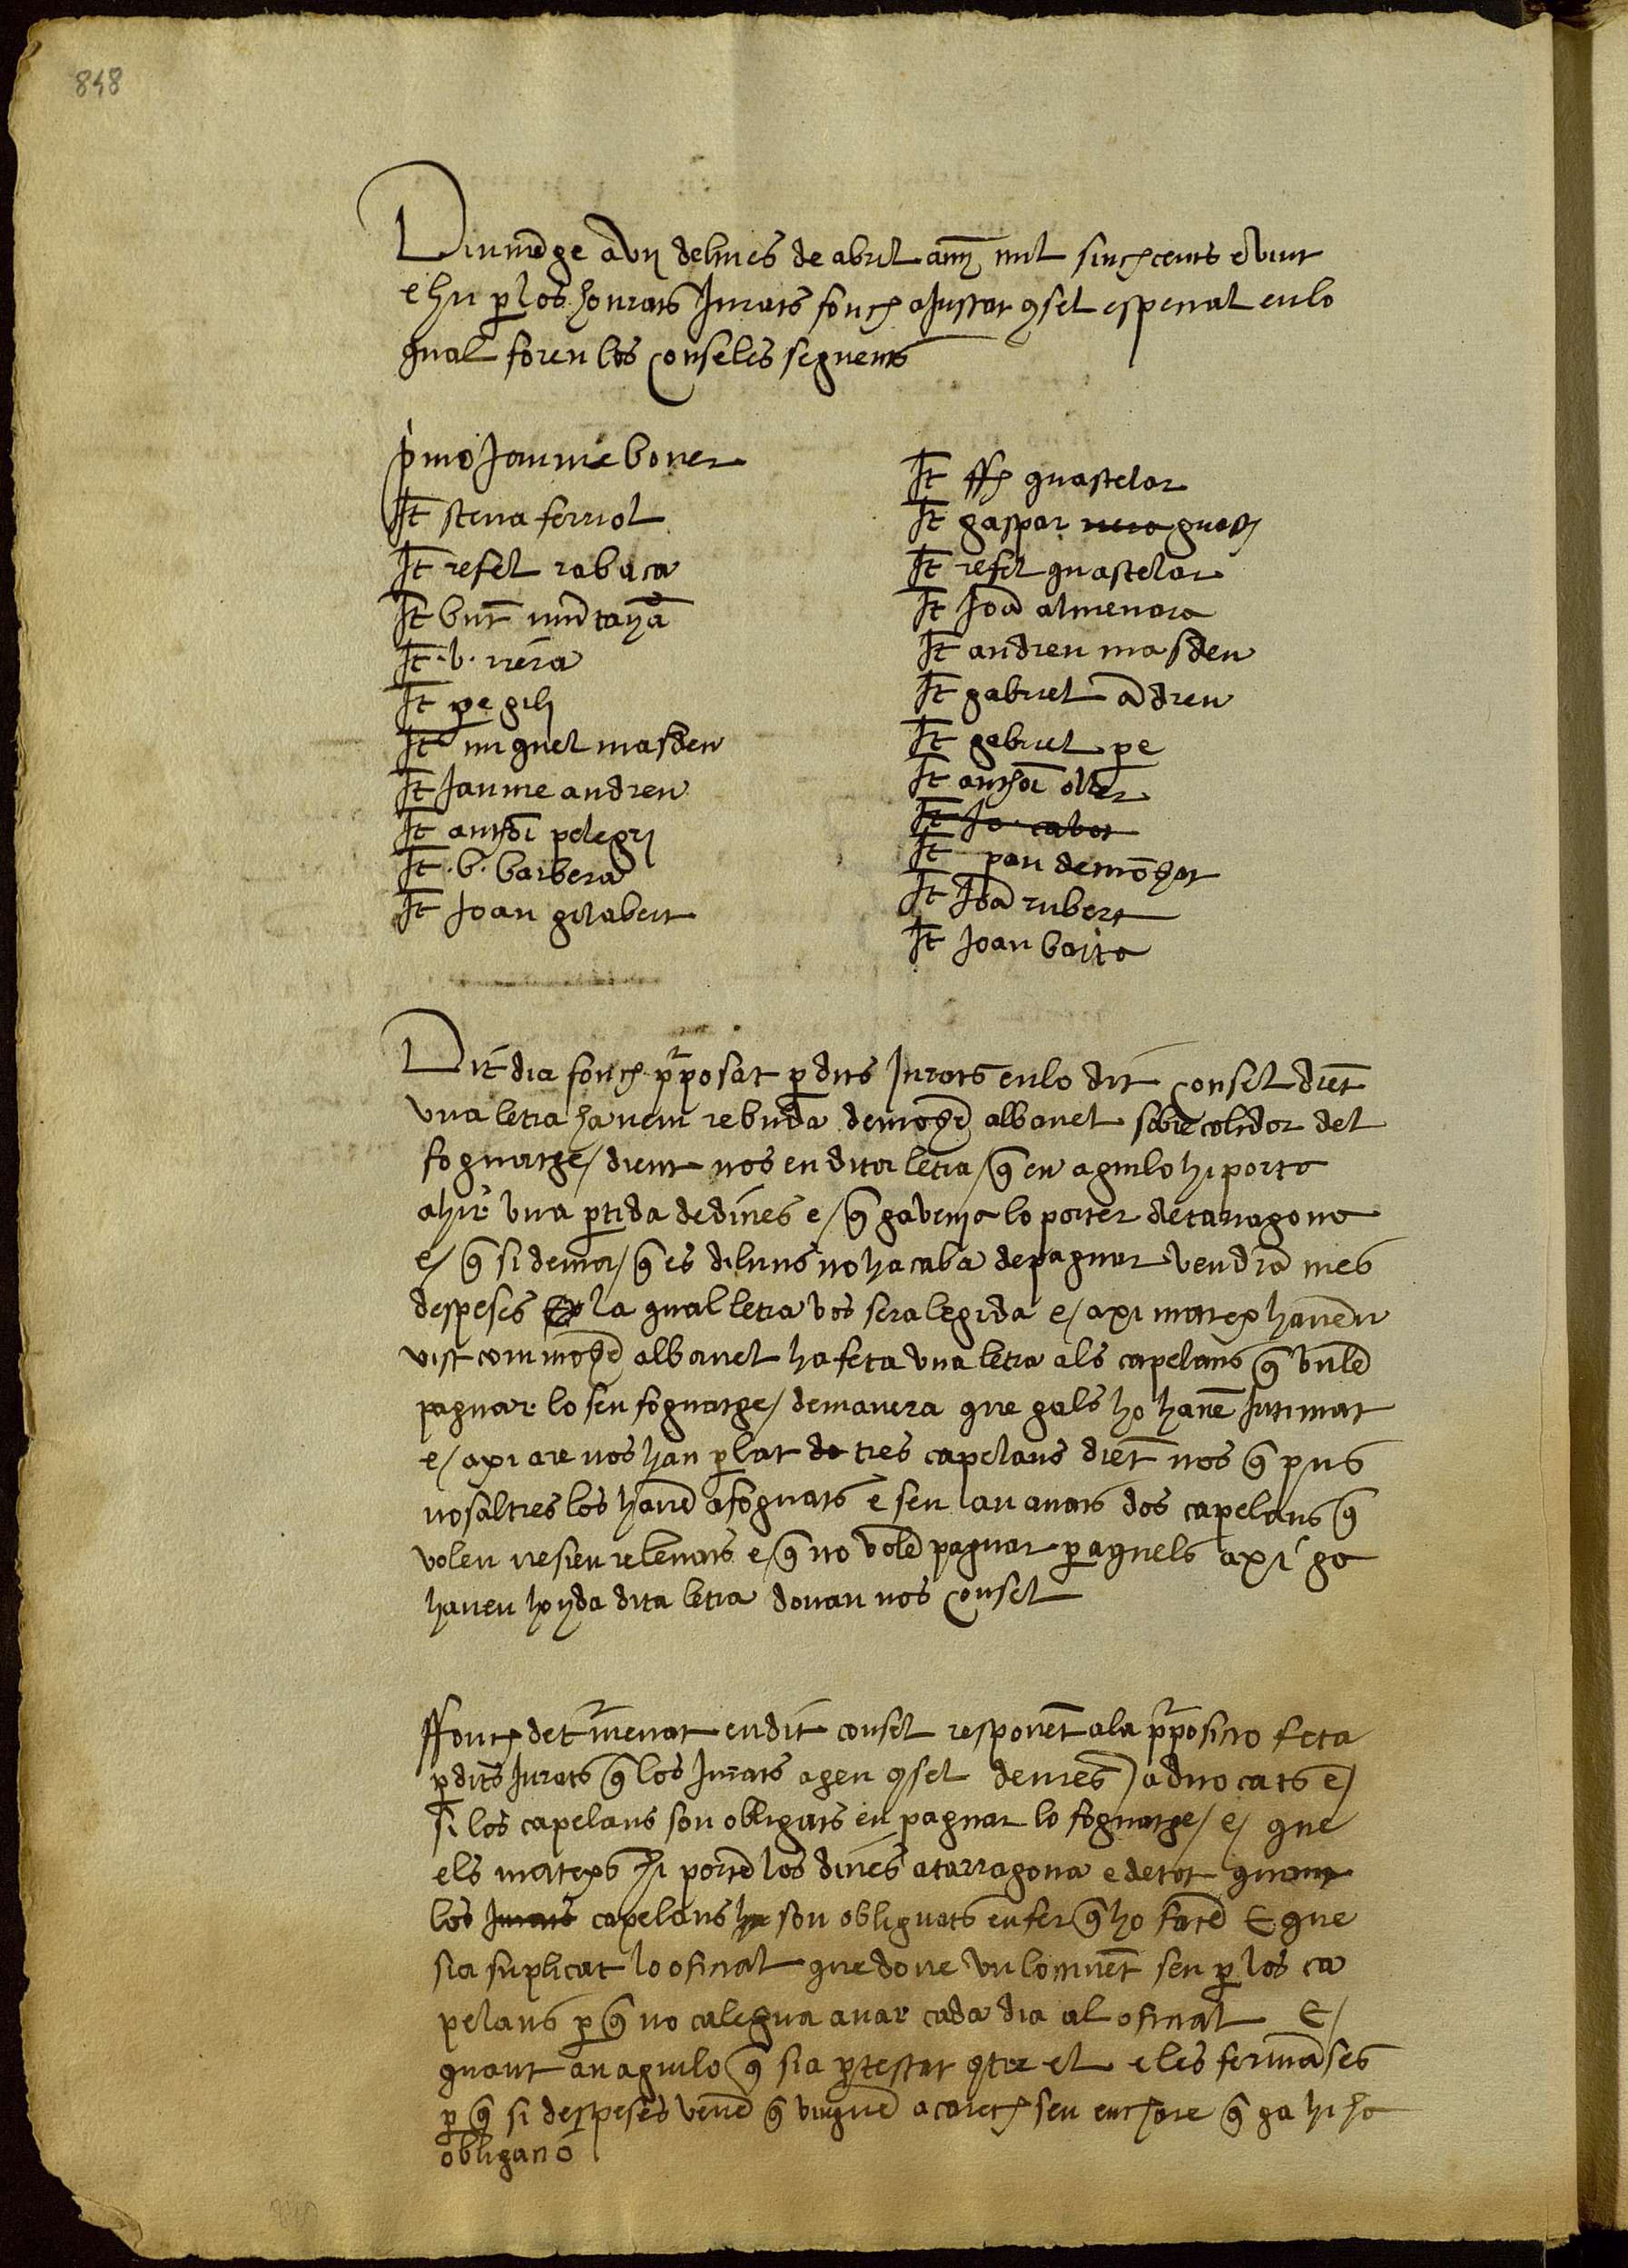 848
Diumēge a vij del mes de abril any mil sinchcents e vint
e hu p los honrats Jurats fonch aJustat qsel espesial en lo
qual foren los conseles seguents
pmo Jaume boner
It steva ferriol
It refel rabaca
It bnt muntayā
It .b. riera
It pe gili
It miquel masdeu
It Jaume andreu
It anthoi pelegrj
It .b. barbera
It Joan gilabert
It ffᵒ guastelar
It gaspar guasch
It refel guastelar
It Joā almenara
It andreu masdeu
It gabriel ādreu
It gabriel pe
It anthoi oller
It Jo. cabot
It pau demōhat
It Joā rubert
It Joan barta
Dit dia fonch pposat p dits Jurats en lo dit consel diēt
vna letra havem rebuda de albanel sobrecolidor del
foguatge / dient nos en dita letra / q en aguilo hi porta
ahir vna ptida de dines e / q ga venja lo porter de tarragona
e / q si dema / q es diluns no ha caba de paguar vendrā mes
despeses la qual letra vos sera legida e / axi matex havem
vist com albanel ha feta vna letra als capelans q vulē
paguar lo seu foguatge / de manera que gals ho havē Intimat
e / axi are nos han plat tres capelans diēt nos q pus
nosaltres los havē afoguats e sen lan anats dos capelans q
volen ne sien relevats e / q no volē paguar p aquels axi ga
haveu hoyda dita letra donau nos consel
ffonch detrmenat en dit consel responēt a la pposisio feta
p dits Jurats q los Jurats agen qsel de mes advocats e /
si los capelans son obligats en paguar lo foguatge / e / que
els matexs hi portē los dines a tarragona e de tot quant
los Jurats capelans ha son obliguats en fer q ho facē E que
sia suplicat lo ofisial que done vn lochtinēt seu p los ca
pelans p q no calegua anar cada dia al ofisial E /
quant an aguilo q sia ptestat qtra el e les fermāses
p q si despeses venē q vinguē a carech seu enchare q ga hi ha
obligano